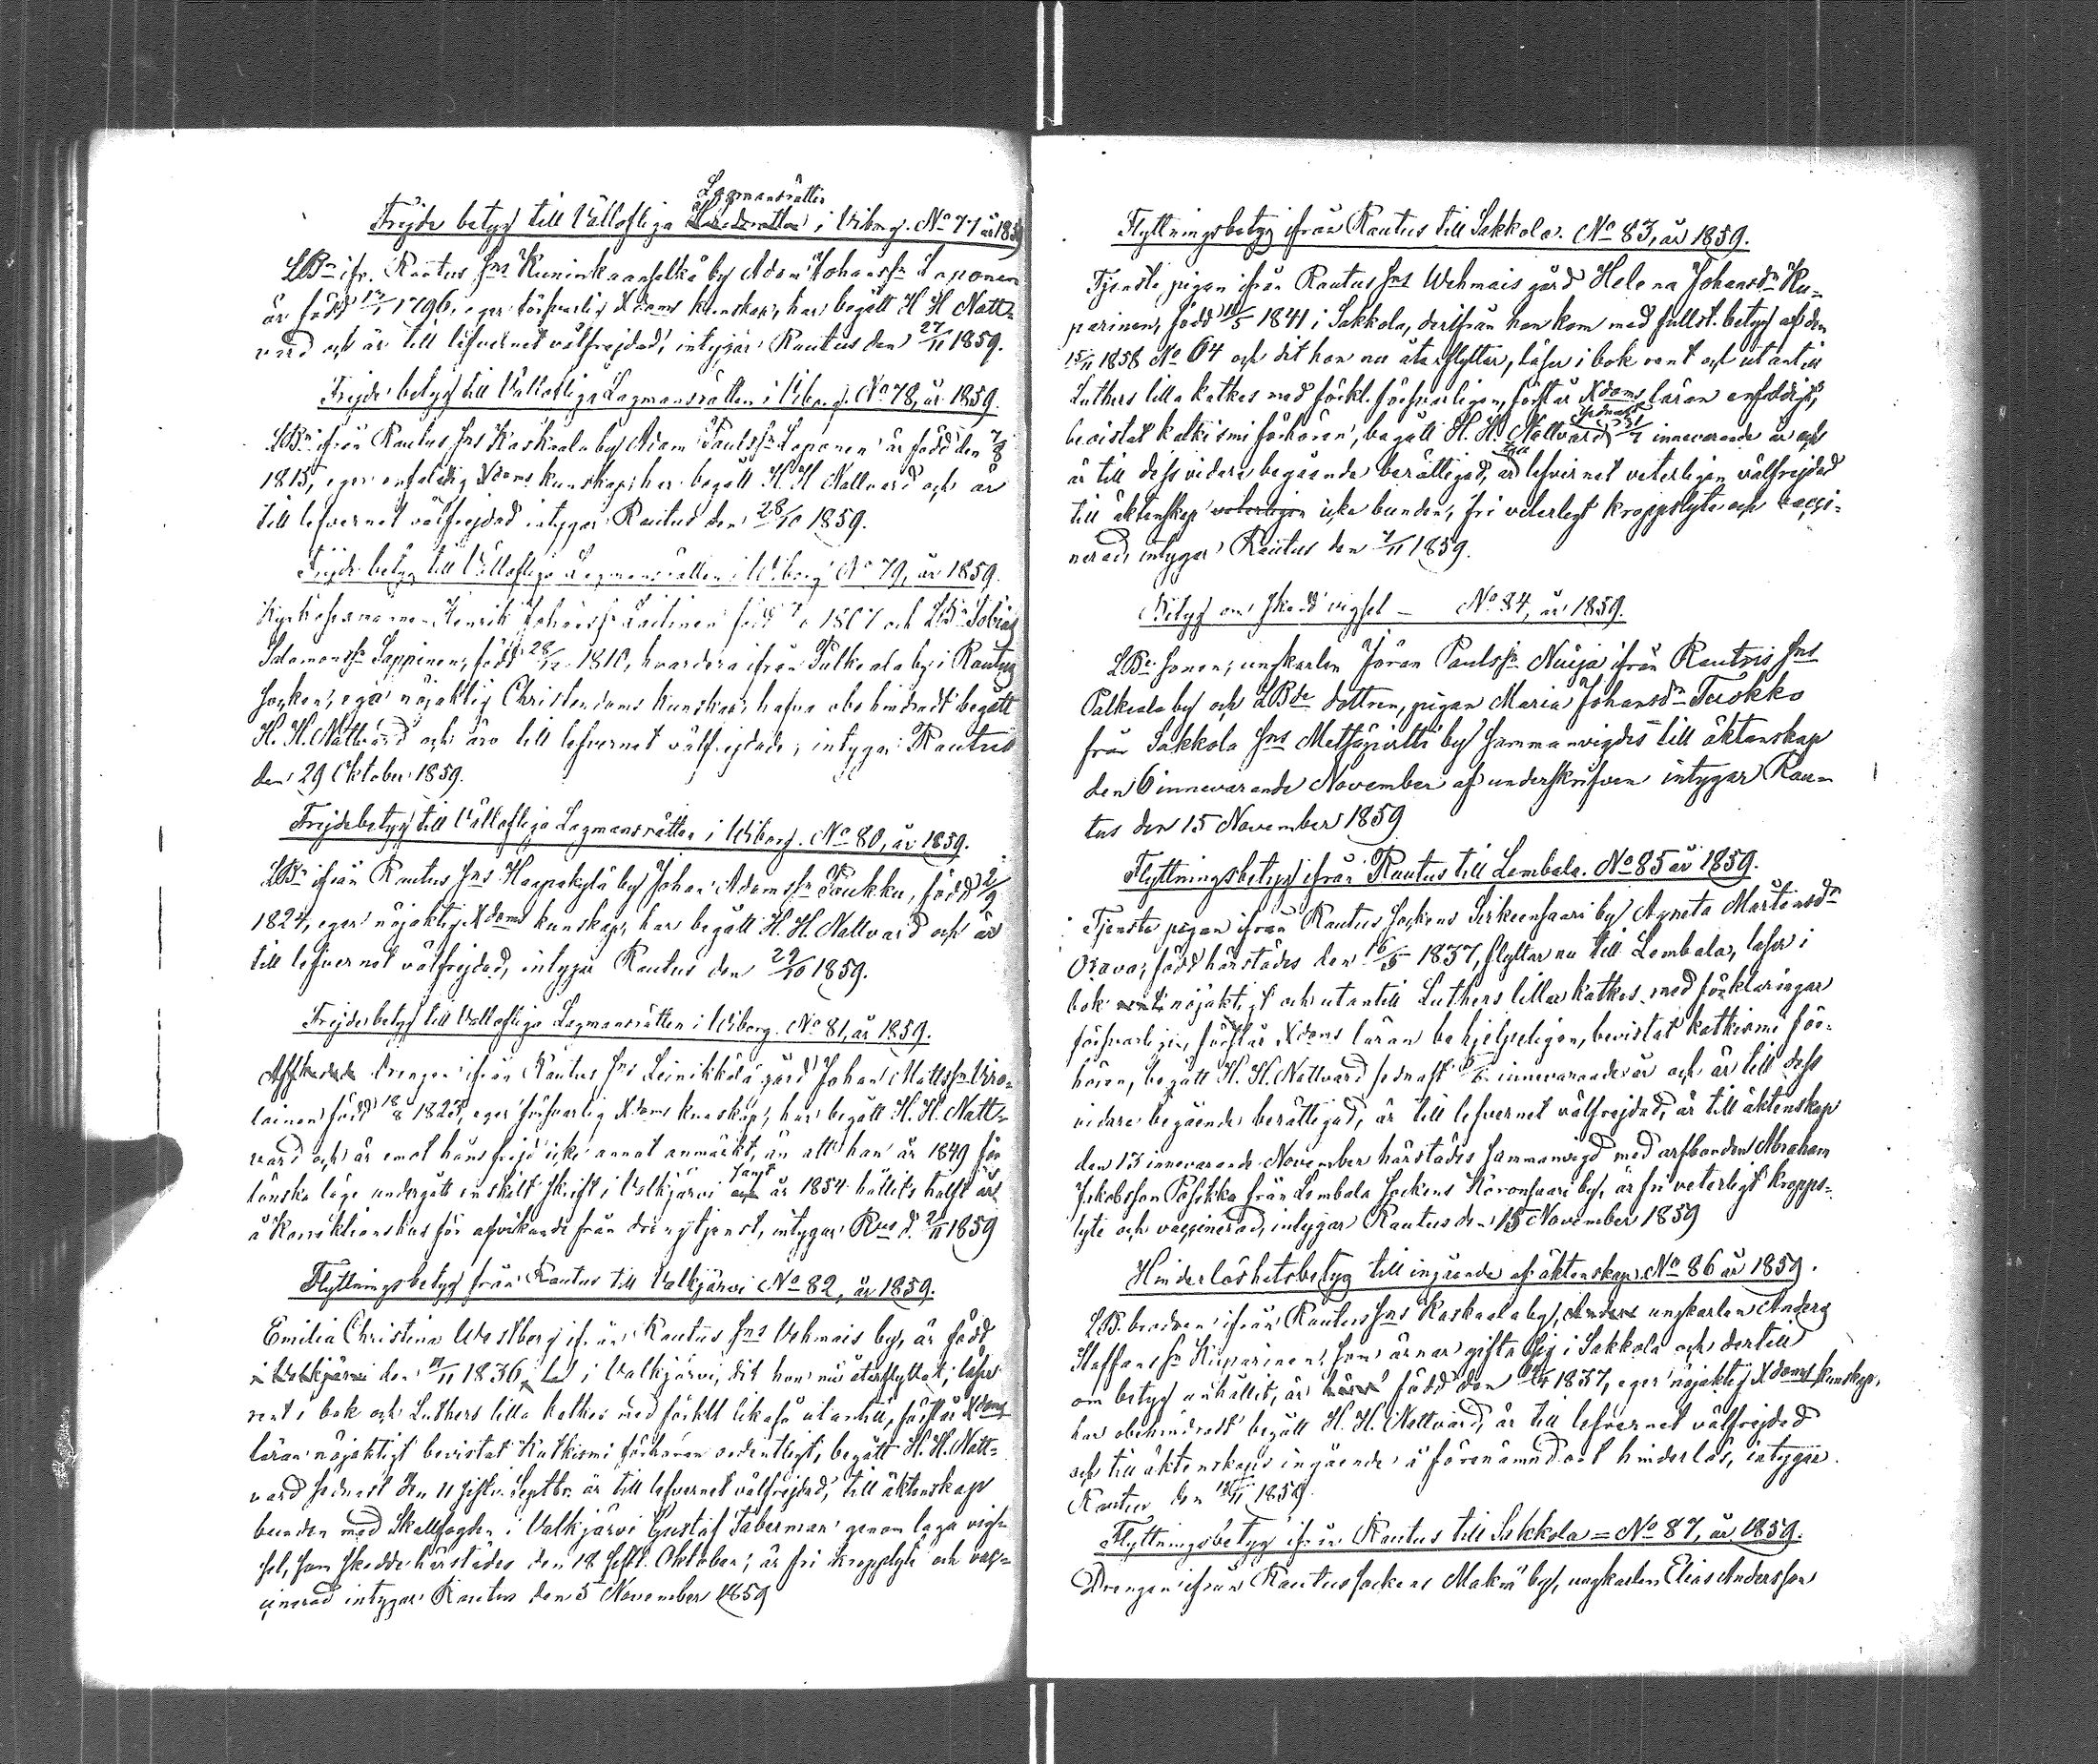 Lagmansrätten
Frejdebetyg till Vällofliga Häradsrätten i Viborg. No 77 år 1859
LBn ifr. Rautus Sns Kuninkaanselkä by Adam Johanssn Loponen
är född 13/1 1796, eger försvarlig Xdoms kunskap, har begått H H Natt-
vard och är till lefvernet välfrejdad, intygar Rautus den 27/11 1859.
Frejdebetyg till Vällofliga Lagmansrätten i Viborg No 78, år 1859.
LBn ifrån Rautus Sns Kaskaala by Adam Paulssn Loponen är född den 7/8
1815, eger enfaldig Xdoms kunskap, har begått H. H Nattvard och är
till lefvernet välfrejdad intygar Rautus den 28/10 1859.
Frejdebetyg till Vällofliga Lagmansrätten i Wiborg No 79, år 1859.
Henrik Johanssn född 1807 och LBn Tobias
Salomonssn Lappinen, född 28/12 1810, hvardera ifrån Palkeala by i Rautus
socken, ega nöjaktig Christendoms kunskap, hafva obehindradt begått
H. H. Nattvard och äro till lefvernet välfrejdade, intygar Rautus
den 29 Oktober 1859.
Frejdebetyg till Vällofliga Lagmansrätten i Wiborg. No 80, år 1859.
LBn ifrån Rautus Sns Haapakylä by Johan Adamssn Paukku, född 2/9
1824, eger nöjaktig Xdoms kunskap, har begått H. H. Nattvard och är
till lefvernet välfrejdad, intygar Rautus den 29/10 1859.
Frejdebetyg till Vällofliga Lagmansrätten i Wiborg. No 81, år 1859.
Drengen ifrån Rautus Sns Leinikkälä gård Johan Mattssn Wiro-
lainen född 18/8 182, eger försvarlig Xdoms kunskap, har begått H. H. Natt-
vard och är emot hans frejd icke annat anmärkt, än att han år 1849 för
lönska läge undergått enskilt skrift i Valkjärvi samt år 1854 hållits halft år
å Korrektionshus för afvikande från drengtjenst, intygar Rus d. 2/11 1859
Flyttningsbetyg från Rautus till Valkjärvi No 82, år 1859.
Emilia Christina Westberg ifrån Rautus Sns Vehmais by, är född
i Valkjärvi den /11 1836 i Valkjärvi, dit hon nu återflyttat, läser
rent i bok och Luthers lilla katkes med förklr likaså utantill, förstår Xdoms
läran nöjaktigt bevistat Katkismi förhören ordentligt, begått H. H. Natt-
vard sednast den 11 sistl. Septbr. är till lefvernet välfrejdad, till äktenskap
bunden med Skallfogden i Valkjärvi Gustaf Taberman genom laga vig-
sel, som skedde härstädes den 18 sistl. Oktober, är fri kroppslyte och vac-
cinerad intygar Rautus den 5 November 1859
Flyttningsbetyg ifrån Rautus till Sakkola. No 83, år 1859.
Tjenste pigan ifrån Rautus Sns Wehmais gård Helena Johansdr Ku-
parinen, född /5 1841 i Sakkola, derifrån hon kom med fullst. betyg af den
15/11 1858 No 64 och dit hon nu återflyttar, läser i bok rent och utantill
Luthers lilla katkes med förkl. försvarligen, förstår Xdoms läran enfaldigt,
bevistat katkismi förhören, begått H. H. Nattvard sednast innevarande år och
är till dess vidare begående berättigad, är till lefvernet veterligen välfrejdad
till äktenskap veterligen icke bunden, fri veterligt kroppslyte och vacci-
nerad, intygar Rautus den 7/11 1859.
Betyg om skedd vigsel — No 84, år 1859.
LBe sonen, ungkarlen Jöran Paulssn Nuija ifrån Rautus Sns
Palkeala by och LBde dottren, pigan Maria Johansdr Tuokko
från Sakkola Sns Metsäpirtti by sammanvigdes till äktenskap
den 6 innevarande November af underskrifven intygar Rau-
tus den 15 November 1859
Flyttningsbetyg ifrån Rautus till Lembala. No 85 år 1859.
Tjenste pigan ifrån Rautus Sockens Sirkeensaari by Agneta Mårtensdr
Orava, född härstädes den 16/5 1837, flyttar nu till Lembala, läser i
bok rent nöjaktigt och utantill Luthers lilla katkes. med förklaringar
försvarligen, förstår Xdoms läran behjelpeligen, bevistat katkismi för-
hören, begått H. H. Nattvard sednast innevarande år och är till dess
vidare begående berättigad, är till lefvernet välfrejdad, är till äktenskap
den 13 innevarande November härstädes sammanvigd med arfbonden Abraham
Jakobsson Posikka från Lembala Sockens Koronsaari by, är fri veterligt kropps-
lyte och vaccinerad, intygar Rautus den 15 November 1859
Hinderlöshetsbetyg till ingående af äktenskap No 86 år 1859.
LB. brodren ifrån Rautus Sns Kaskaala by, Anders ungkarlen Anders
Staffanssn Kuparinen, som ärnar gifta sig i Sakkola och dertill
om betyg anhållit, är född den 1837, eger nöjaktig Xdoms kunskap,
har obehindradt begått H. H. Nattvard, är till lefvernet välfrejdad
och till äktenskaps ingående å förenämnd ort hinderlös, intygar
Rautus den /11 1859.
Flyttningsbetyg ifrån Rautus till Sakkola = No 87, år 1859.
Drengen ifrån Rautus sockens Makiä by, ungkarlen Elias Andersson